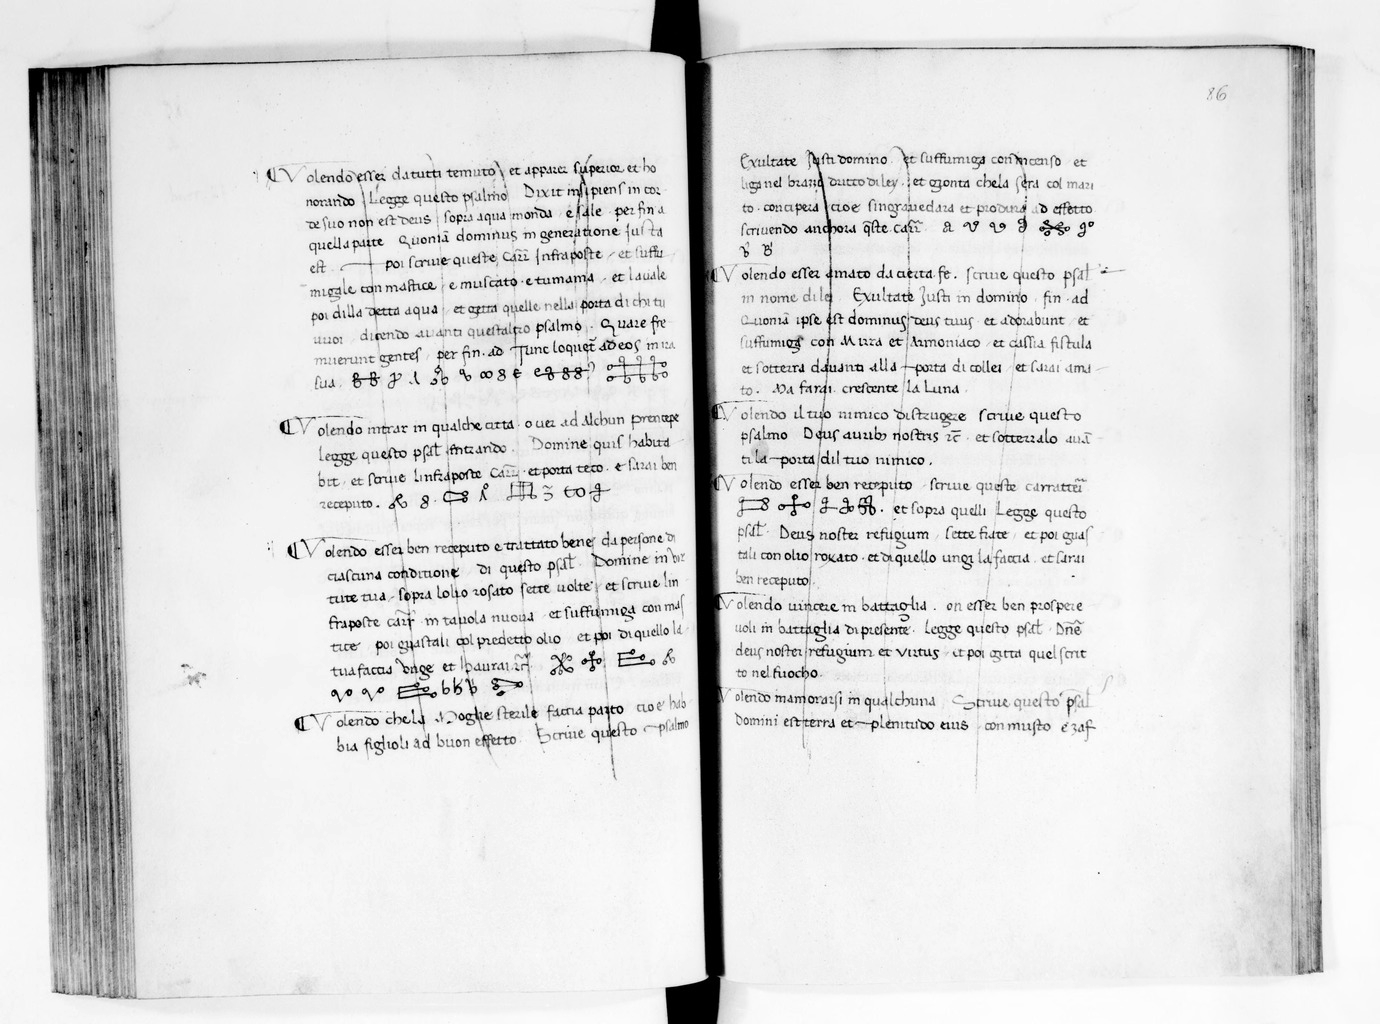 Volendo esser da tutti temuto et apparer superior et ho
norando Legge questo psalmo Dixit insipiens in cor
de suo non est deus sopra aqua monda e sale per fin a
quella parte Quoniā dominus in generatione justa
est poi scrive queste Carr̄ Infraposte et suffu
migale con mastice e muscato e tumama et lavale
poi dilla detta aqua et getta quelle nella porta di chi tu
vuoi dicendo avanti questaltro psalmo. Quare fre
muerunt gentes per fin ad Tunc loquet̄ ad eos in ira
sua.
Volendo intrar in qualche citta o ver ad Alchun prencepe
legge questo psal̄ intrando. Domine quis habita
bit et scrive linfraposte Carr̄ et porta teco e sarai ben
receputo.
Volendo esser ben receputo e trattato bene da persone di
ciascuna conditione di questo psal̄ Domine in vir
tute tua sopra lolio rosato sette volte et scrive lin
fraposte carr̄ in tavola nuova et suffumiga con mas
tice poi guastali col predetto olio et poi di quello la
tua faccia Unge et haurai
Volendo chela Moglie sterile faccia parto cio e hab
bia figlioli ad buon effetto. Scrive questo psalmo
86
Exultate Justi domino et suffumiga con incenso et
liga nel brazo dritto di ley et gionta chela sera col mari
to concipera cioe singravedara et produra ad effetto
scrivendo anchora q̄ste Carr̄
Volendo esser amato da certa fe. scrive questo psal̄
in nome di lei Exultate Justi in domino fin ad
Quoniā ipse est dominus deus tuus et adorabunt et
suffumiga con Mirra et Armoniaco et cassia fistula
et sotterra davanti alla porta di collei et sarai ama
to. Ma farai crescente la Luna.
Volendo il tuo nimico distrugere scrive questo
psalmo Deus auribȝ nostris et sotterralo avā
ti la porta dil tuo nimico.
Volendo esser ben receputo scrive queste carratter̄
et sopra quelli Legge questo
psal̄ Deus noster refugium sette fiate et poi guas
tali con olio roxato et di quello ungi la faccia et sarai
ben receputo.
Volendo vincere in battaglia. on esser ben prospere
voli in battaglia di presente. legge questo psal̄ Dn̄e
deus noster refugium et virtus et poi gitta quel scrit
to nel fuocho.
Volendo inamorarsi in qualchuna Scrive questo psal̄
Domini est terra et plenitudo eius con musto e zaf